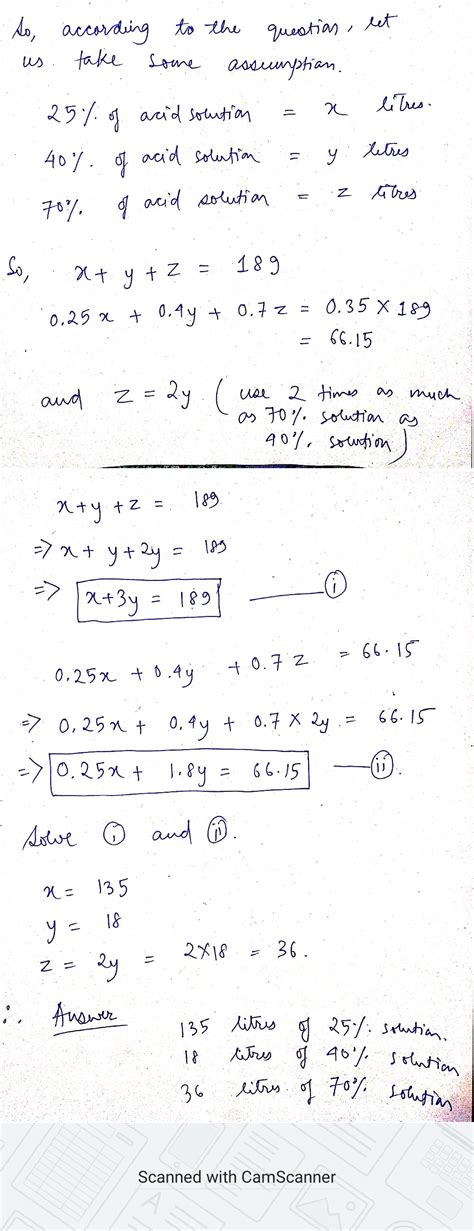 So, according to the question, let
us take some assumption.
25% of acid solution = x litres.
40% of acid solution = y litres
70% of acid solution = z litres
So, x + y + z = 189
0.25x + 0.4y + 0.7z = 0.35 × 189
= 66.15
and z = 2y (use 2 times as much
as 70% solution as
40% solution)
x+y+z = 189
=> x + y+2y = 189
=> x+3y = 189 ——— (i)
0.25x + 0.4y + 0.7z = 66.15
=> 0.25x + 0.4y + 0.7 × 2y = 66.15
=> 0.25x + 1.8y = 66.15 —— (ii).
Solve (i) and (ii).
x = 135
y = 18
z = 2y = 2×18 = 36.
∴ Answer 135 litres of 25% solution.
18 litres of 40% solution
36 litres of 70% solution
Scanned with CamScanner